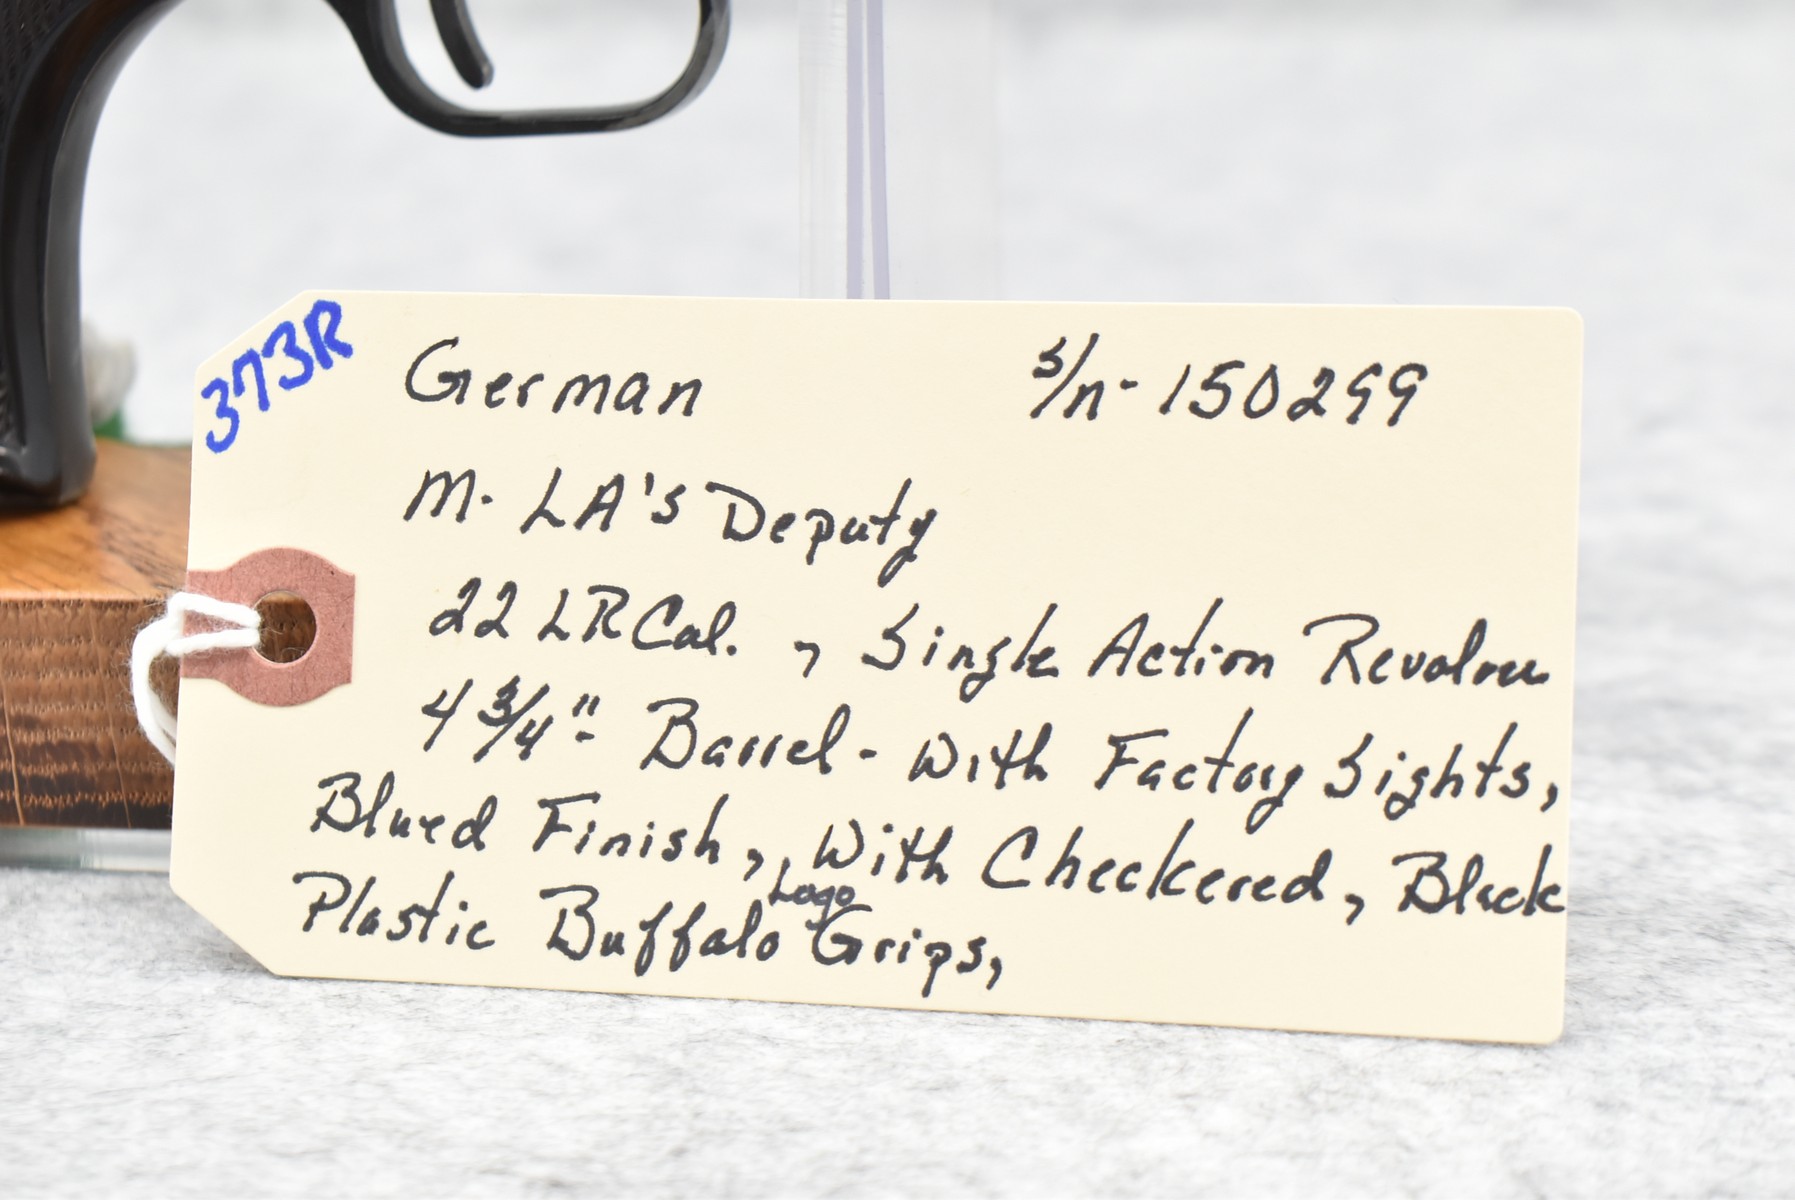 373R
German s/n-150299
M. LA's Deputy
22 LR Cal. , Single Action Revolver
4 3/4"- Barrel - With Factory Sights,
Blued Finish, , With Checkered, Black
Plastic Buffalo Logo Grips,